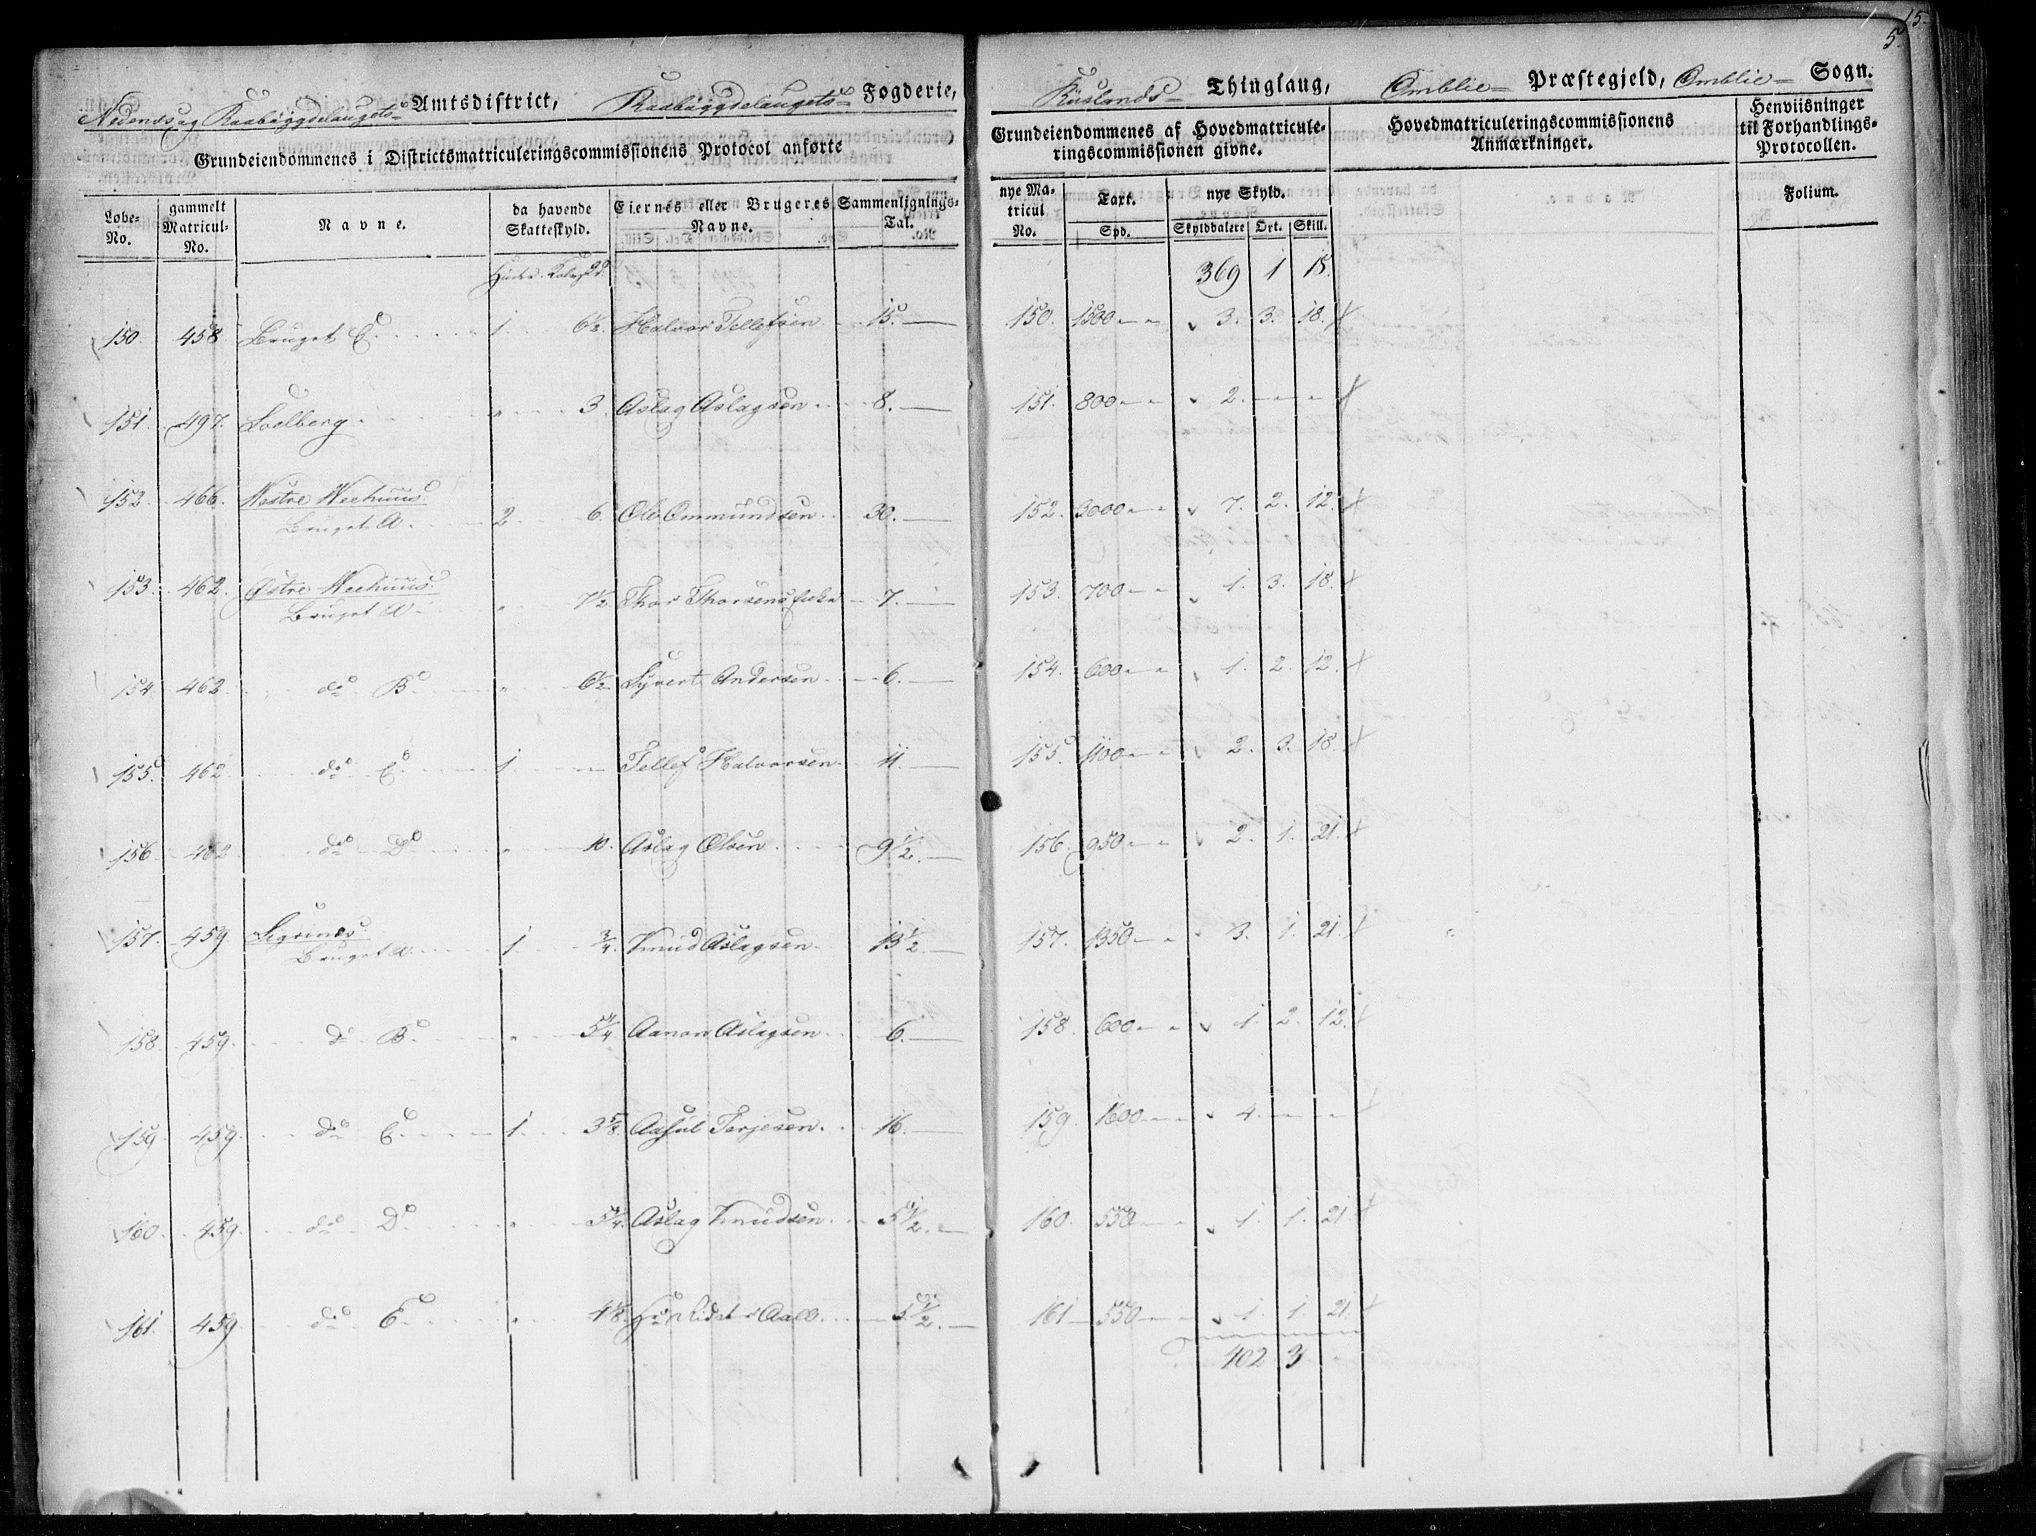 15.
5.
Nedenes og Raabøygdelaugets Amtsdistrict, Raabøygdelaugets Fogderie,
Grundeiendommenes i Districtsmatriculeringscommissionens Protocol anførte
Løbe-No. gammelt Matricul-No. Navne. da havende Skatteskyld. Eiernes eller Brugeres Navne. Sammenlignings-Tal.
150. 458. Bruget C. 1. 6½. Halvor Tellefsen 15.
151. 497. Soelberg. " 3. Aslag Aslagsen 8.
152. 466. Westre Weehuus.
Bruget A. 2. 6. Ole Ommundsen 30.
153. 462. Østre Weehuus.
Bruget A. " 7½ Thor Thorsens 7.
154. 462. do B. " 6½ Syvert Andersen 6.
155. 462. do C. 1. Tellef Halvorsen 11.
156. 462 do D. " 10. Aslag Olsen 9½.
157. 459.
Bruget A. 1. ¾. Knud Aslagsen 13½.
158. 459. do B. " 5¼ Aanon Aslagsen 6.
159. 459. do C. 1. 3⅝. Terjesen 16.
160. 459. do D. " 5¼. Aslag Knudsen 5½.
161. 459. do E. " 4⅛. Aall 5½.
Thinglaug, Omblie Præstegjeld, Omblie Sogn.
Grundeiendommenes af Hovedmatriculeringscommissionen givne. Hovedmatriculeringscommissionens Anmærkninger. Henviisninger til Forhandlings-Protocollen.
nye Matricul No. Taxt. Spd. nye Skyld. Skylddalere Ort. Skill. Folium.
369 1 15.
150. 1500 3. 3. 18.
151. 800 2.
152. 3000 7. 2. 12.
153. 700 1. 3. 18.
154. 600 1. 2. 12.
155. 1100 2. 3. 18.
156. 950 2. 1. 21.
157. 1350 3. 1. 21.
158. 600 1. 2. 12.
159. 1600 4.
160. 550 1. 1. 21.
161 550 1. 1. 21.
402 3